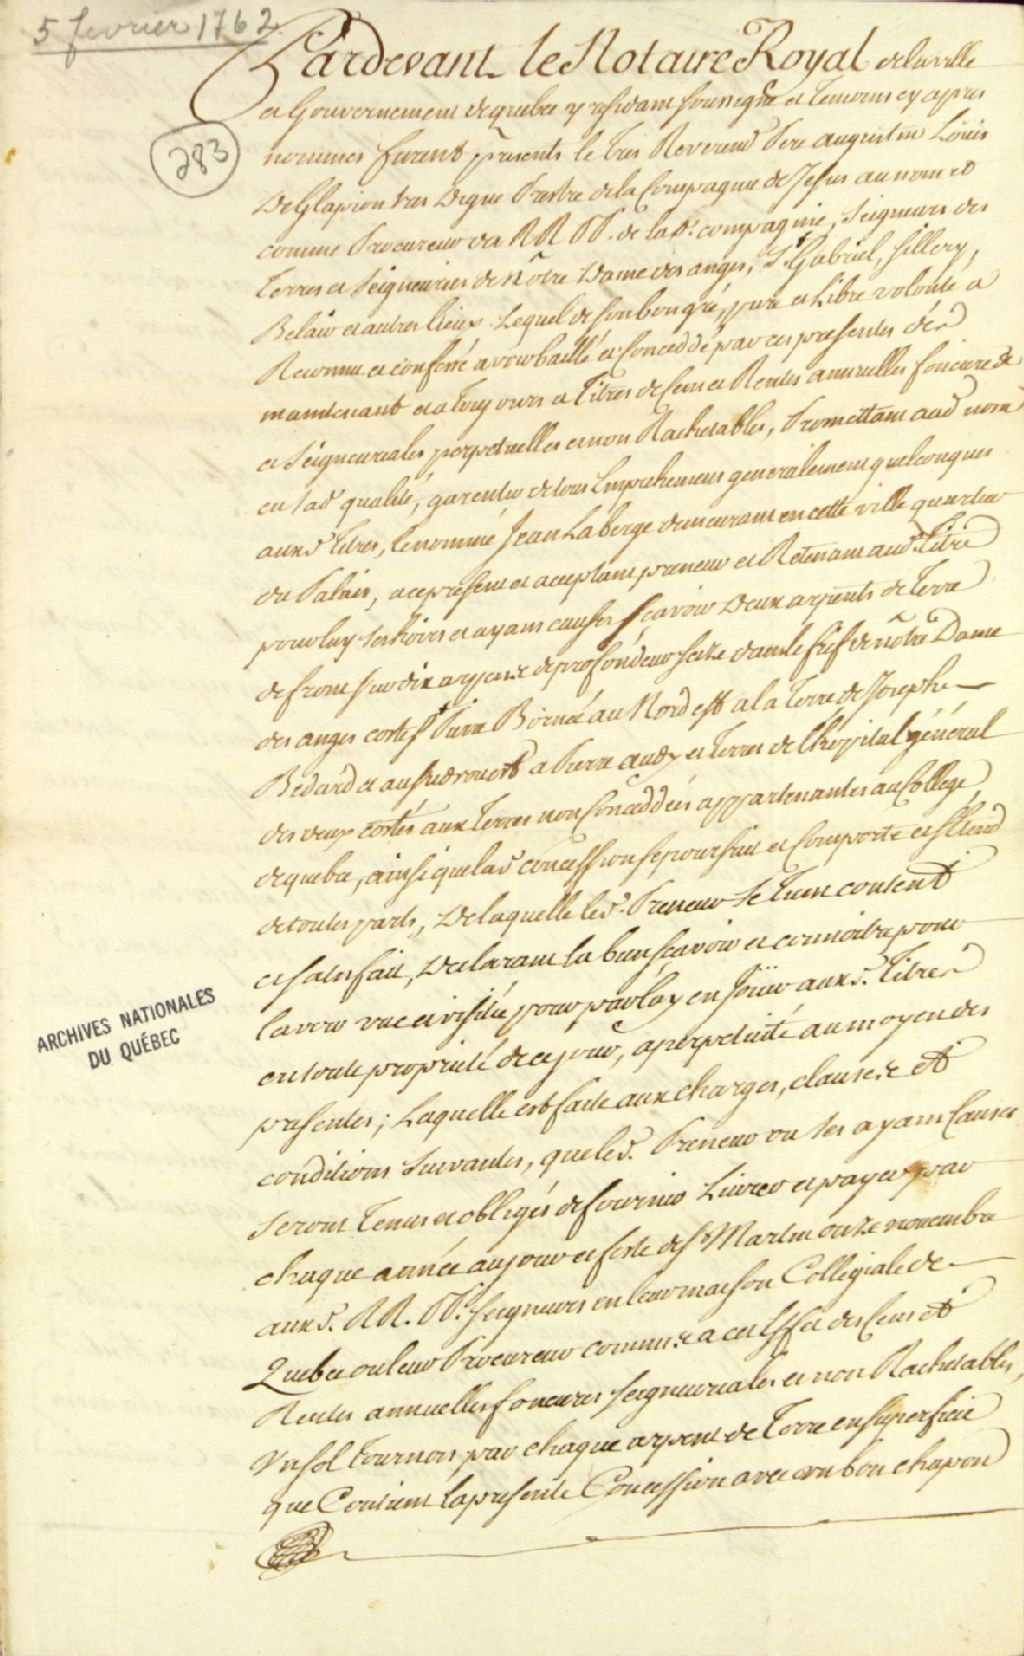 5 fevrier 1762
Pardevant le Notaire Royal de la ville
et Gouvernement de quebec y residant soussigné et Temoins cy apres
283
nommés furent presents le Tres Reverend Pere augustin Loüis
De Glapion tres Digne Prestre de la Compagnie de Jesus au nom et
comme Procureur des RR PP. de lad. compagnie, Seigneurs des
Terres et Seigneuries de nôtre Dame des anges, St. Gabriel, sillery,
Belair et autres lieux. Lequel de son bon gré, pure et Libre volonté a
Reconnu et confessé avoir baillé et Conceddé par ces presentes dés
maintenant et a Toujours a Titres de Cens et Rentes annuelles foncieres
et Seigneuriales perpetuelles et non Rachetables, Promettant aud. nom
en sad. qualité, garentir de tous Empechemens generalement quelconques
auxd. Titres, le nommé Jean Laberge demeurant en cette ville quartier
du Palais, a ce present et acceptant preneur et Retenant aud. Titre
pour luy ses hoirs et ayans causes Scavoir Deux arpents de Terre
de front sur dix arpens de profondeur scize dans le fief de nôtre Dame
des anges coste St. Pierre Bornée au Nord est a la Terre de Joseph
Bedard et au sudrouest a Pierre audy et Terres de l'hôpital général
des deux costés aux Terres non Conceddées appartenantes au College
de quebec, ainsi que lad. concession se poursuit et Comporte et s'Etend
de toutes parts, De laquelle led. Preneur se Tient content
et satisfait, Declarant la bien scavoir et connoitre pour
lavoir vue et visitée pour par luy en Joüir auxd. Titres
en toute propriété de ce jour, a perpetuité au moyen des
presentes; Laquelle est faite aux charges, clauses et
conditions Suivantes, que led. Preneur ou ses ayans Causes
seront Tenus et obligés de fournir Livrer et payer par
chaque année au jour et feste de St. Martin onze novembre
auxd. RR. PP. Seigneurs en leur maison Collegiale de
Quebec ou leur Procureur commis a cet Effet des Cens et
Rentes annuelles foncieres seigneuriales et non Rachetables,
Un sol tournois par chaque arpent de Terre en superficie
que Contient la presente Concession avec un bon chapon
ARCHIVES NATIONALES
DU QUÉBEC